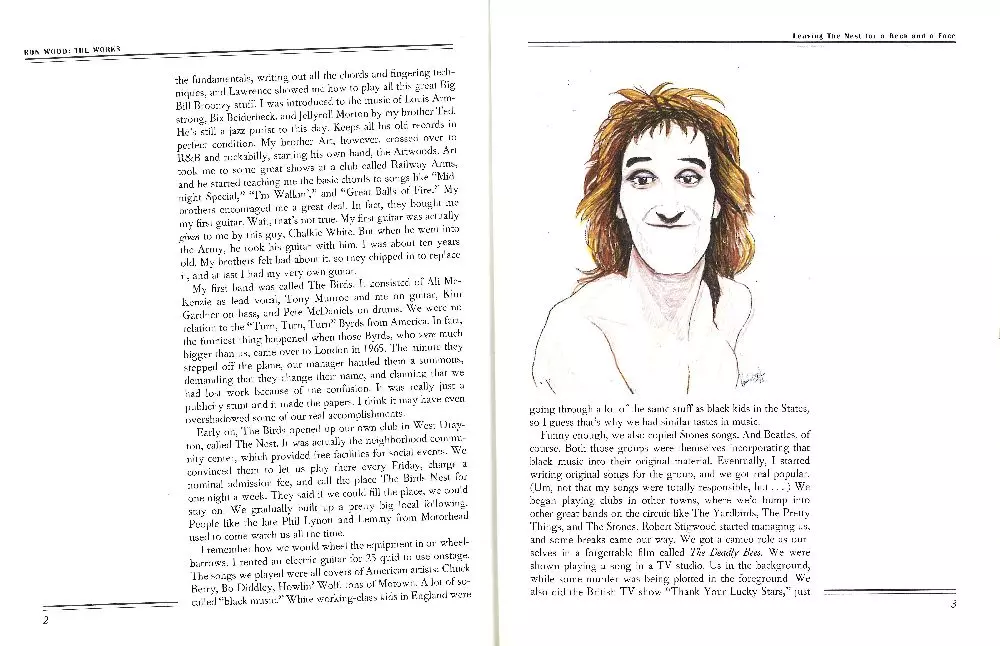 RON WOOD: THE WORKS
the fundamentals, writing out all the chords and fingering tech-
niques, and Lawrence showed me how to play all this great Big
Bill Broonzy stuff. I was introduced to the music of Louis Arm-
strong, Bix Beiderbeck, and Jellyroll Morton by my brother Ted.
He's still a jazz purist to this day. Keeps all his old records in
perfect condition. My brother Art, however, crossed over to
R&B and rockabilly, starting his own band, the Artwoods. Art
took me to some great shows at a club called Railway Arms,
and he started teaching me the basic chords to songs like "Mid-
night Special," "I'm Walkin'," and "Great Balls of Fire." My
brothers encouraged me a great deal. In fact, they bought me
my first guitar. Wait, that's not true. My first guitar was actually
given to me by this guy, Chalkie White. But when he went into
the Army, he took his guitar with him. I was about ten years
old. My brothers felt bad about it, so they chipped in to replace
it, and at last I had my very own guitar.
My first band was called The Birds. It consisted of Ali Mc-
Kenzie as lead vocal, Tony Munroe and me on guitar, Kim
Gardner on bass, and Pete McDaniels on drums. We were no
relation to the "Turn, Turn, Turn" Byrds from America. In fact,
the funniest thing happened when those Byrds, who were much
bigger than us, came over to London in 1965. The minute they
stepped off the plane, our manager handed them a summons,
demanding that they change their name, and claiming that we
had lost work because of the confusion. It was really just a
publicity stunt and it made the papers. I think it may have even
overshadowed some of our real accomplishments.
Early on, The Birds opened up our own club in West Dray-
ton, called The Nest. It was actually the neighborhood commu-
nity center, which provided free facilities for social events. We
convinced them to let us play there every Friday, charge a
nominal admission fee, and call the place The Birds Nest for
one night a week. They said if we could fill the place, we could
stay on. We gradually built up a pretty big local following.
People like the late Phil Lynott and Lemmy from Motorhead
used to come watch us all the time.
I remember how we would wheel the equipment in on wheel-
barrows. I rented an electric guitar for 25 quid to use onstage.
The songs we played were all covers of American artists: Chuck
Berry, Bo Diddley, Howlin' Wolf, tons of Motown. A lot of so-
called "black music." White working-class kids in England were
2
Leaving The Nest for a Beck and a Face
going through a lot of the same stuff as black kids in the States,
so I guess that's why we had similar tastes in music.
Funny enough, we also copied Stones songs. And Beatles, of
course. Both those groups were themselves incorporating that
black music into their original material. Eventually, I started
writing original songs for the group, and we got real popular.
(Um, not that my songs were totally responsible, but . . .) We
began playing clubs in other towns, where we'd bump into
other great bands on the circuit like The Yardbirds, The Pretty
Things, and The Stones. Robert Stigwood started managing us,
and some breaks came our way. We got a cameo role as our-
selves in a forgettable film called The Deadly Bees. We were
shown playing a song in a TV studio. Us in the background,
while some murder was being plotted in the foreground. We
also did the British TV show "Thank Your Lucky Stars," just
3